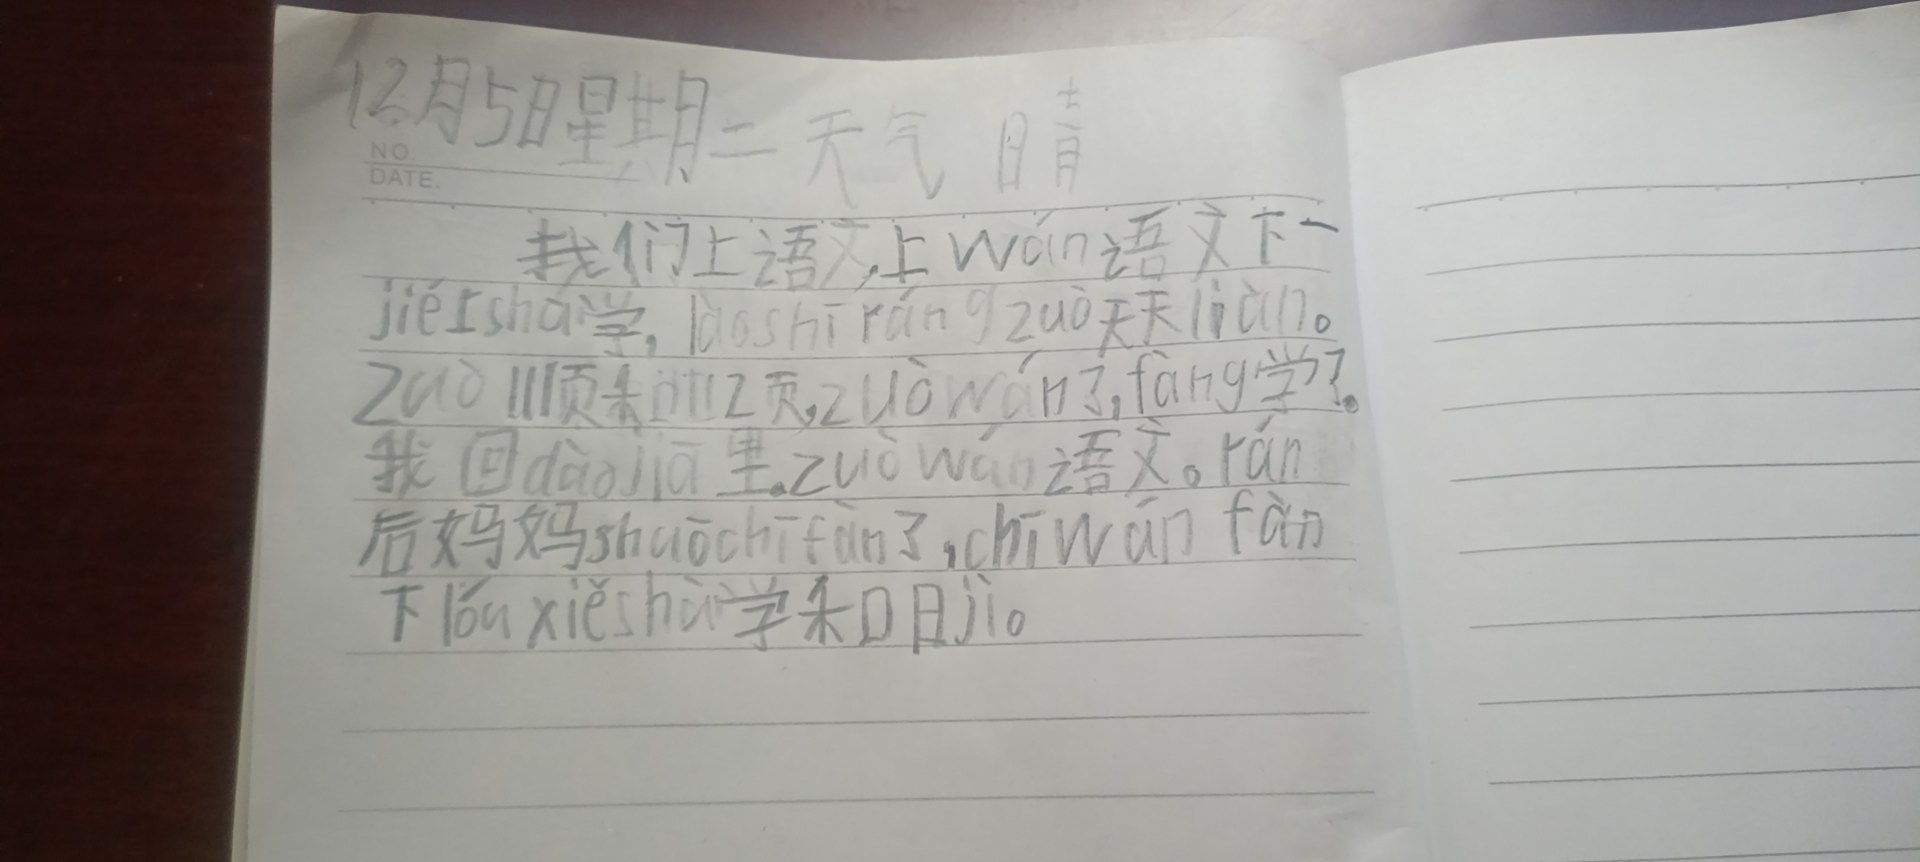 12月5日星期二 天气 晴
NO.
DATE.
我们上语文,上wán语文下一
jiéshì shù学,lǎoshī ráng zuò天天liàn。
zuò 111页和112页,zuò wán了,fàng学了。
我回dào jiā里。zuò wán语文。rán
后妈妈shuō chī fàn了,chī wán fàn
下lóu xiě shù学和日jì。